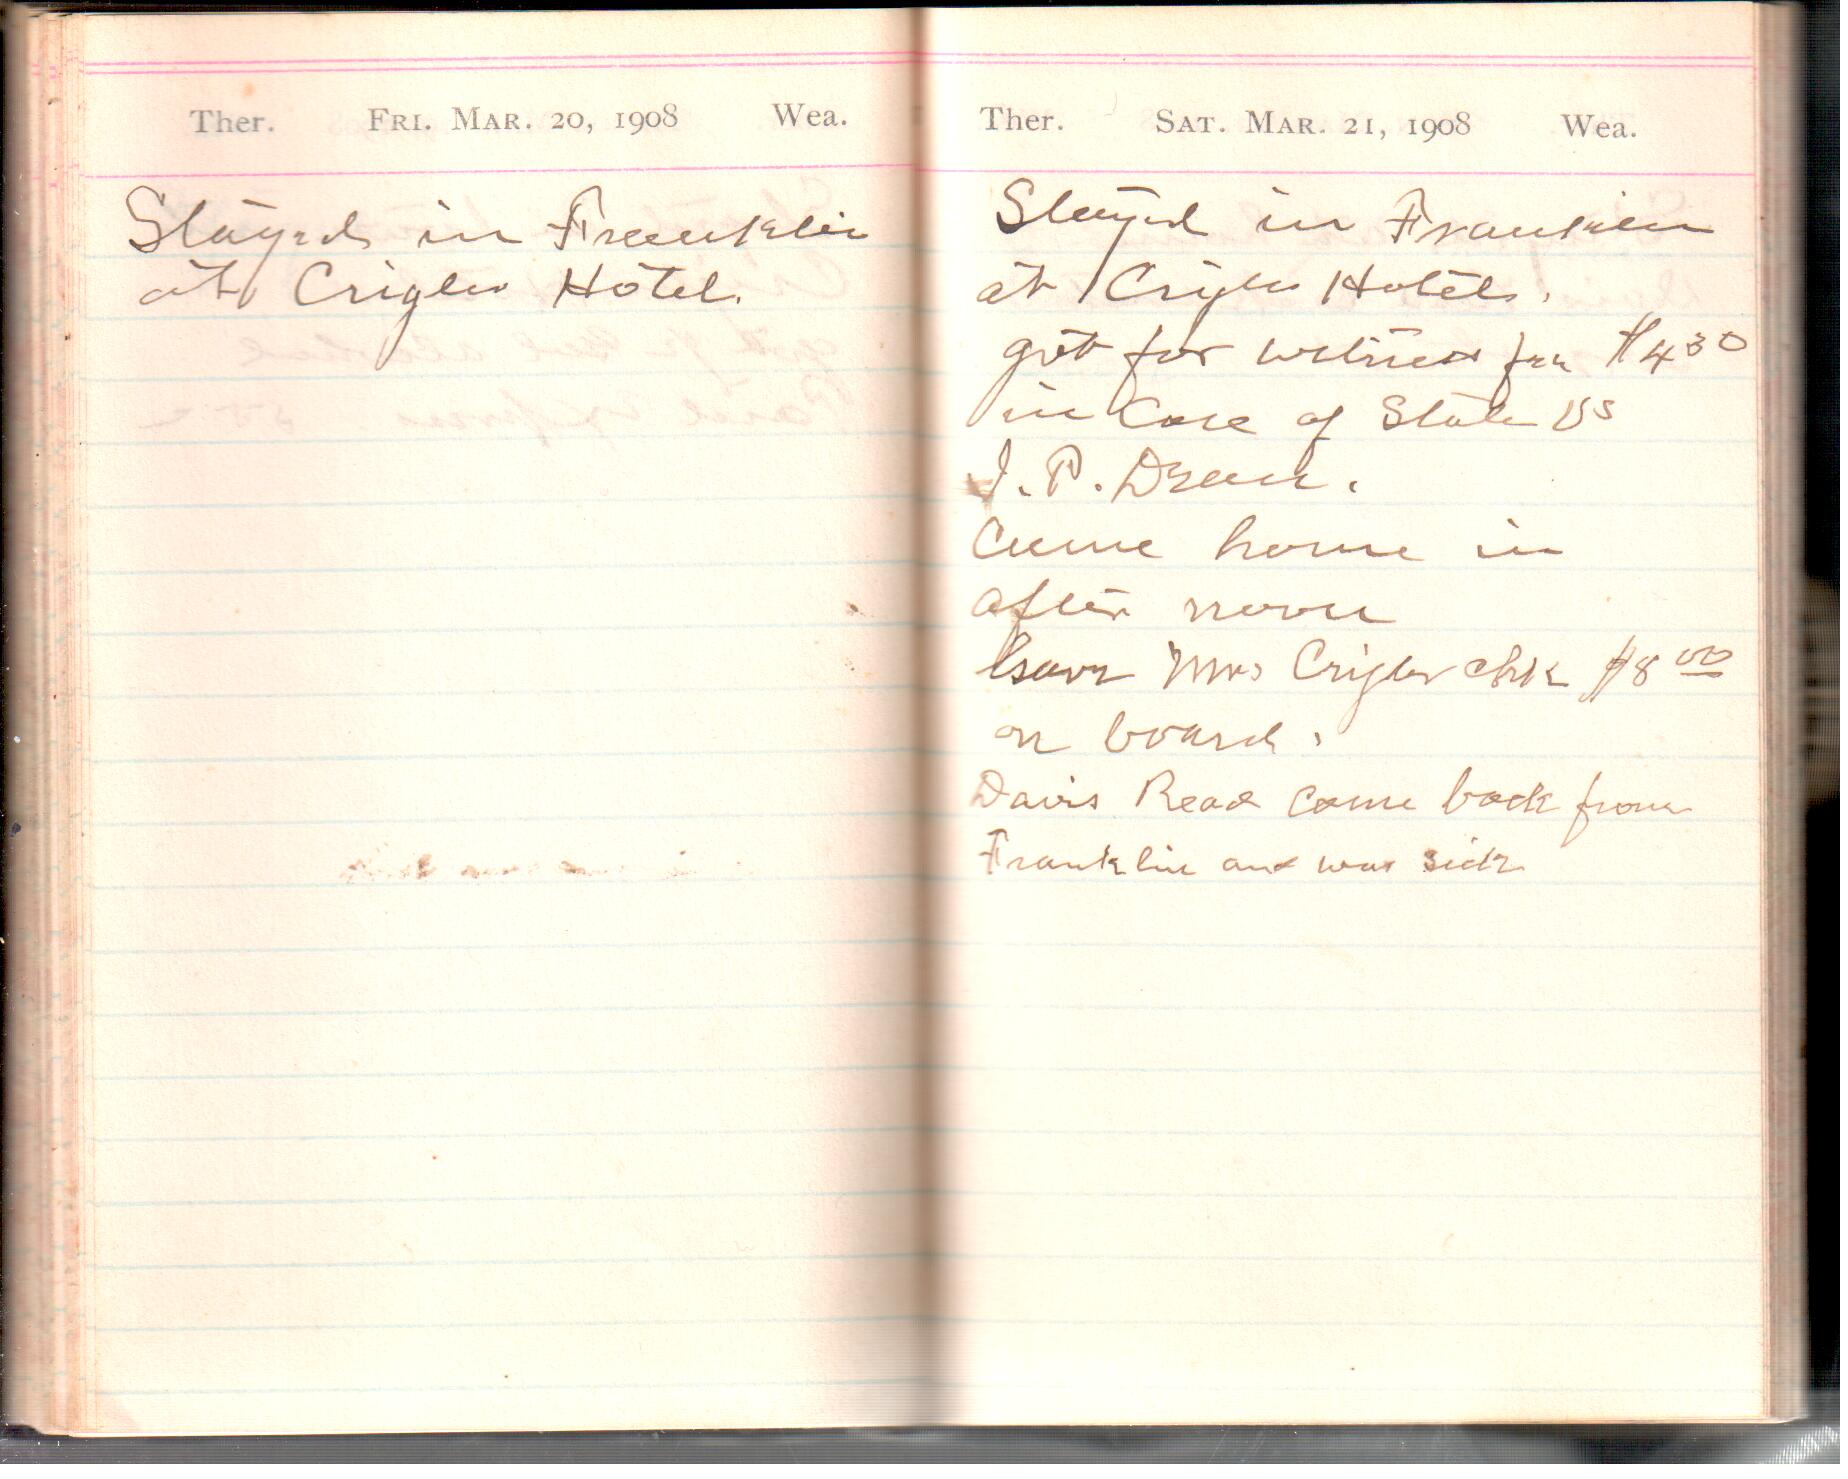 Ther. Fri. Mar. 20, 1908 Wea.
Stayed in Franklin
at Crigler Hotel.
Ther. Sat. Mar. 21, 1908 Wea.
Stayed in Franklin
at Crigler Hotel.
got for witness fee $4 30
in Case of State vs
J. P. Drean.
Came home in
after noon
Gave Mrs Crigler chk $8 00
on board.
Davis Read come back from
Franklin and was sick